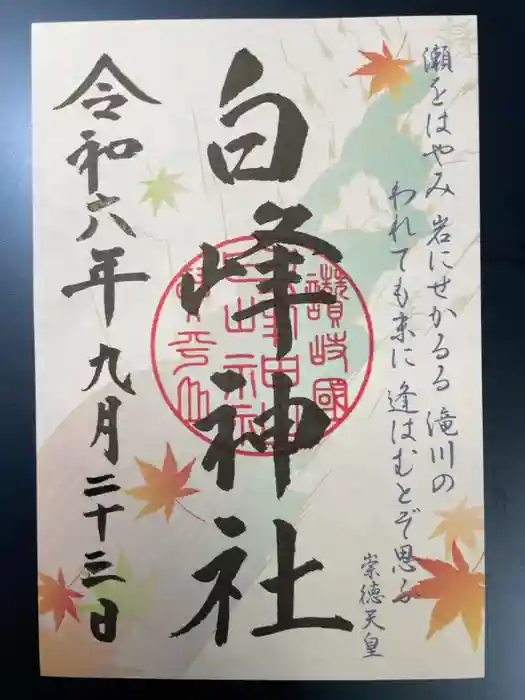 瀬をはやみ 岩にせかるる 滝川の
われても末に 逢はむとぞ思ふ
崇徳天皇
白峰神社
讃岐國
令和六年九月二十三日